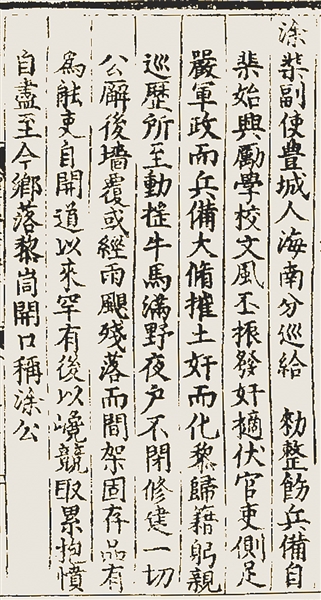 涂棐副使豊城人海南分巡給 勑整飭兵備自
棐始興勵學校文風丕振發奸擿伏官吏側足
嚴軍政而兵備大脩摧土奸而化黎歸籍躬親
巡歷所至動牛馬滿野夜戶不閉修建一切
公廨後墻覆或經雨颶殘落而間架固存品有
為能吏自開道以來罕有後以嶢競取累抱憤
自盡至今鄉落黎峝開口稱涂公